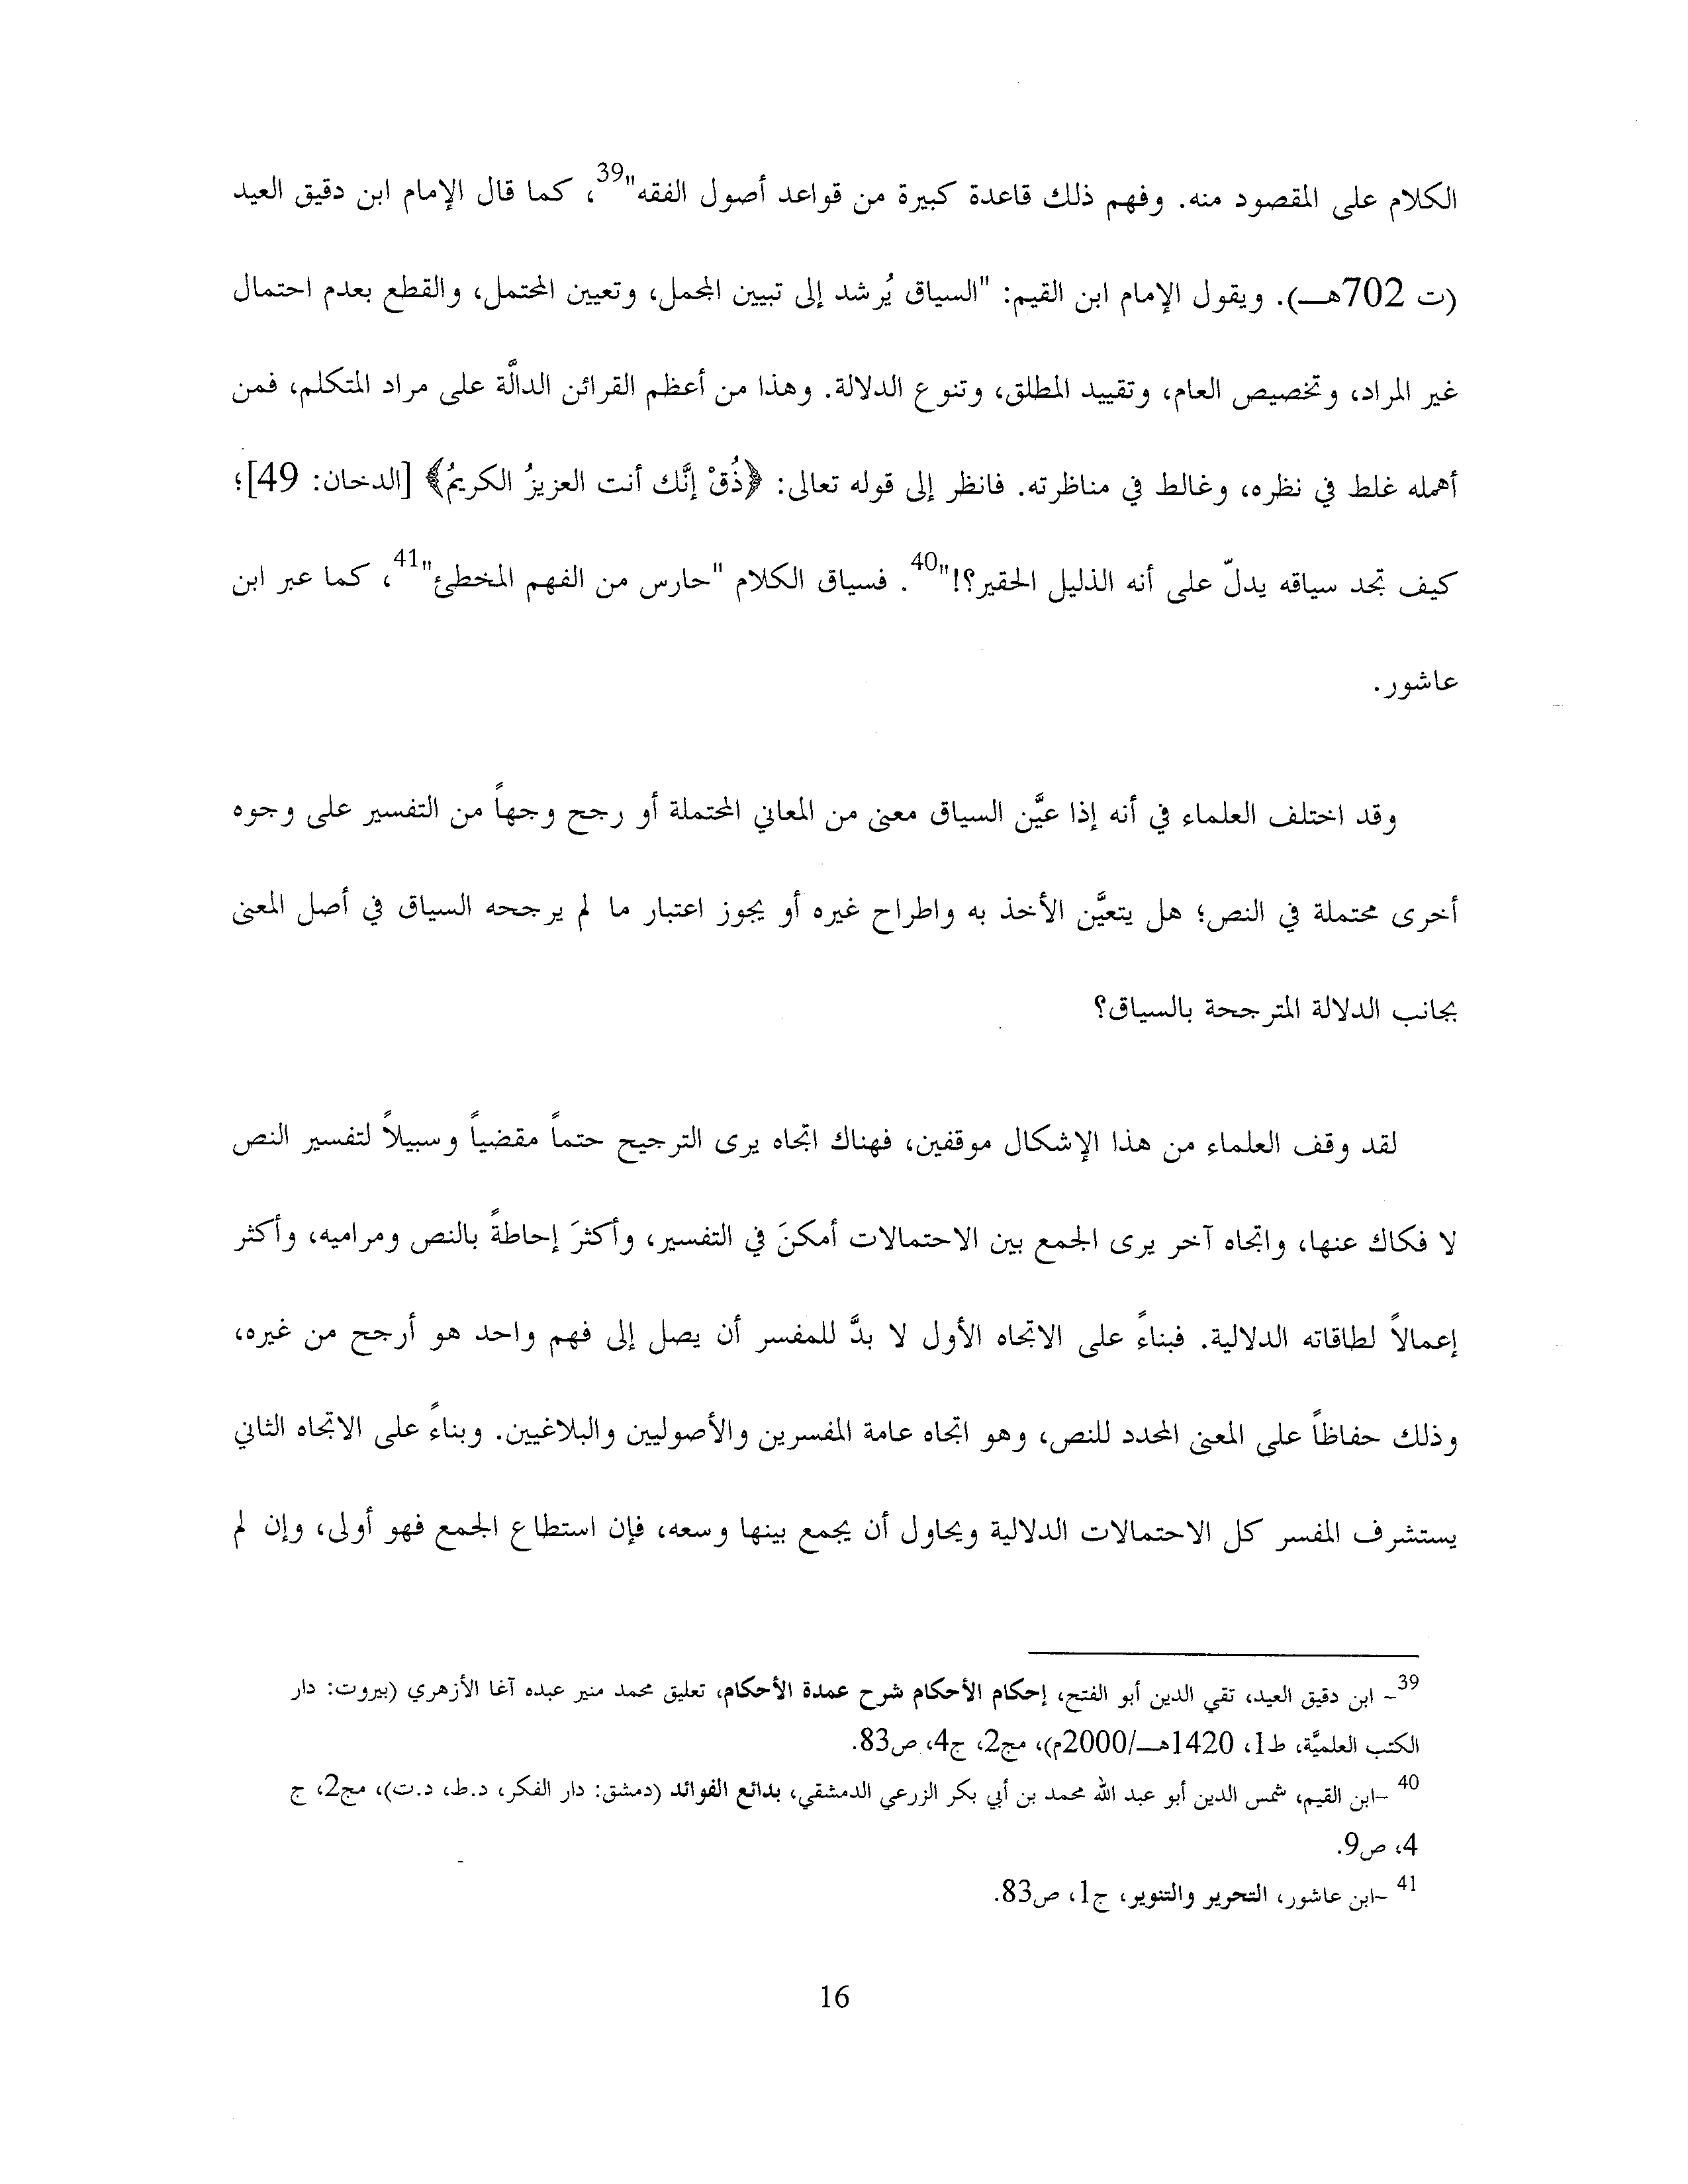 الكلام على المقصود منه. وفهم ذلك قاعدة كبيرة من قواعد أصول الفقه"39، كما قال الإمام ابن دقيق العيد
(ت 702هـ). ويقول الإمام ابن القيم: "السياق يُرشد إلى تبيين المجمل، وتعيين المحتمل، والقطع بعدم احتمال
غير المراد، وتخصيص العام، وتقييد المطلق، وتنوع الدلالة. وهذا من أعظم القرائن الدالَّة على مراد المتكلم، فمن
أهمله غلط في نظره، وغالط في مناظرته. فانظر إلى قوله تعالى: ﴿ذُقْ إنَّك أنت العزيزُ الكريمُ﴾ [الدخان: 49]؛
كيف تجد سياقه يدلّ على أنه الذليل الحقير؟!"40. فسياق الكلام "حارس من الفهم المخطئ"41، كما عبر ابن
عاشور.
وقد اختلف العلماء في أنه إذا عيَّن السياق معنى من المعاني المحتملة أو رجح وجهاً من التفسير على وجوه
أخرى محتملة في النص؛ هل يتعيَّن الأخذ به واطراح غيره أو يجوز اعتبار ما لم يرجحه السياق في أصل المعنى
بجانب الدلالة المترجحة بالسياق؟
لقد وقف العلماء من هذا الإشكال موقفين، فهناك اتجاه يرى الترجيح حتماً مقضياً وسبيلاً لتفسير النص
لا فكاك عنها، واتجاه آخر يرى الجمع بين الاحتمالات أمكنَ في التفسير، وأكثرَ إحاطةً بالنص ومراميه، وأكثر
إعمالاً لطاقاته الدلالية. فبناءً على الاتجاه الأول لا بدَّ للمفسر أن يصل إلى فهم واحد هو أرجح من غيره،
وذلك حفاظاً على المعنى المحدد للنص، وهو اتجاه عامة المفسرين والأصوليين والبلاغيين. وبناءً على الاتجاه الثاني
يستشرف المفسر كل الاحتمالات الدلالية ويحاول أن يجمع بينها وسعه، فإن استطاع الجمع فهو أولى، وإن لم
39- ابن دقيق العيد، تقي الدين أبو الفتح، إحكام الأحكام شرح عمدة الأحكام، تعليق محمد منير عبده آغا الأزهري (بيروت: دار
الكتب العلميَّة، ط1، 1420هـ/2000م)، مج2، ج4، ص83.
40 -ابن القيم، شمس الدين أبو عبد الله محمد بن أبي بكر الزرعي الدمشقي، بدائع الفوائد (دمشق: دار الفكر، د.ط، د.ت)، مج2، ج
4، ص9.
41 -ابن عاشور، التحرير والتنوير، ج1، ص83.
16